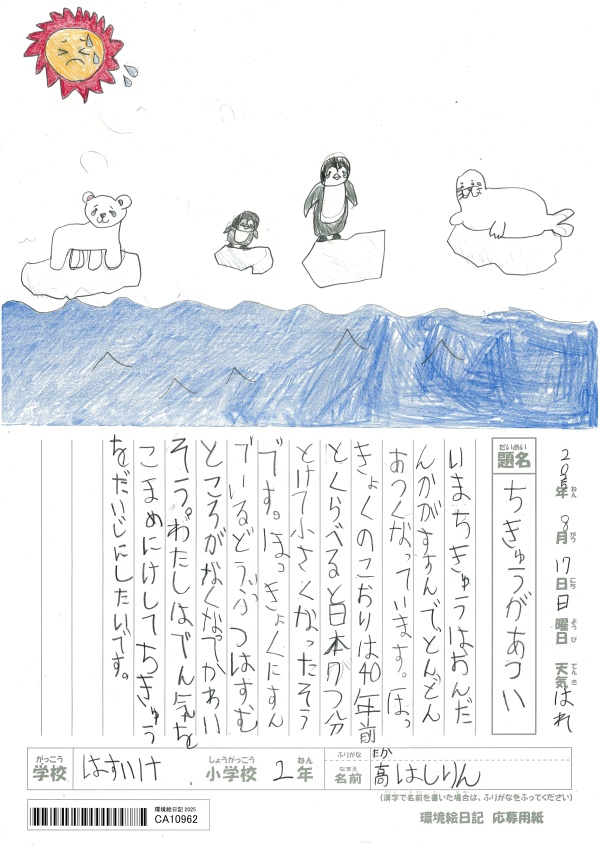 2025年 8月 17日 日曜日 天気 はれ
ねん がつ にち ようび てんき
だいめい
題名
ちきゅうがあつい
いまちきゅうはおんだ
んかがすすんで、どんどん
あつくなっています。ほっ
きょくのこおりは40年前
とくらべると日本の7つ分
とけて小さくなったそう
です。ほっきょくにすん
でいるどうぶつはすむ
ところがなくなってかわい
そう。わたしはでん気を
こまめにけしてちきゅう
をだいじにしたいです。
がっこう
学校
はすいけ
しょうがっこう
小学校
2
ねん
年
ふりがな
たか
なまえ
名前
高はしりん
(漢字で名前を書いた場合は、ふりがなをふってください)
環境絵日記 2025
CA10962
環境絵日記 応募用紙